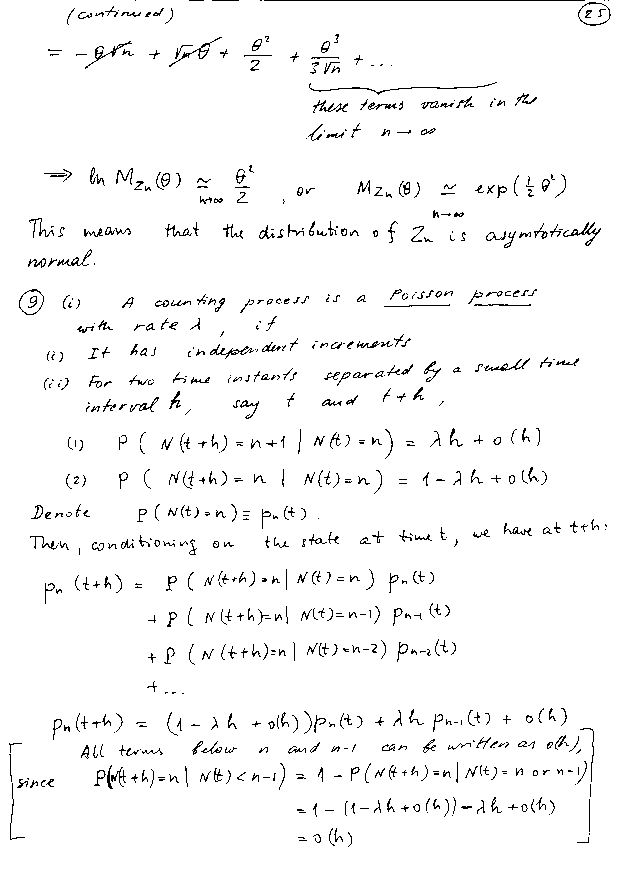 (continued) 25
= -θ√n + √nθ + θ²/2 + θ³/3√n + ...
these terms vanish in the
limit n → ∞
⟹ ln M_Zn(θ) ≃ θ²/2 , or M_Zn(θ) ≃ exp(½θ²)
n→∞ n→∞
This means that the distribution of Zn is asymtotically
normal.
9 (i) A counting process is a Poisson process
with rate λ, if
(i) It has independent increments
(ii) For two time instants separated by a small time
interval h, say t and t+h,
(1) P( N(t+h) = n+1 | N(t) = n) = λh + o(h)
(2) P( N(t+h) = n | N(t) = n) = 1 - λh + o(h)
Denote P(N(t) = n) ≡ pn(t).
Then, conditioning on the state at time t, we have at t+h:
pn(t+h) = P(N(t+h) = n | N(t) = n) pn(t)
+ P(N(t+h) = n | N(t) = n-1) pn-1(t)
+ P(N(t+h) = n | N(t) = n-2) pn-2(t)
+ ...
pn(t+h) = (1 - λh + o(h))pn(t) + λh pn-1(t) + o(h)
All terms below n and n-1 can be written as o(h),
since P(N(t+h) = n | N(t) < n-1) = 1 - P(N(t+h) = n | N(t) = n or n-1)
= 1 - (1 - λh + o(h)) - λh + o(h)
= o(h)